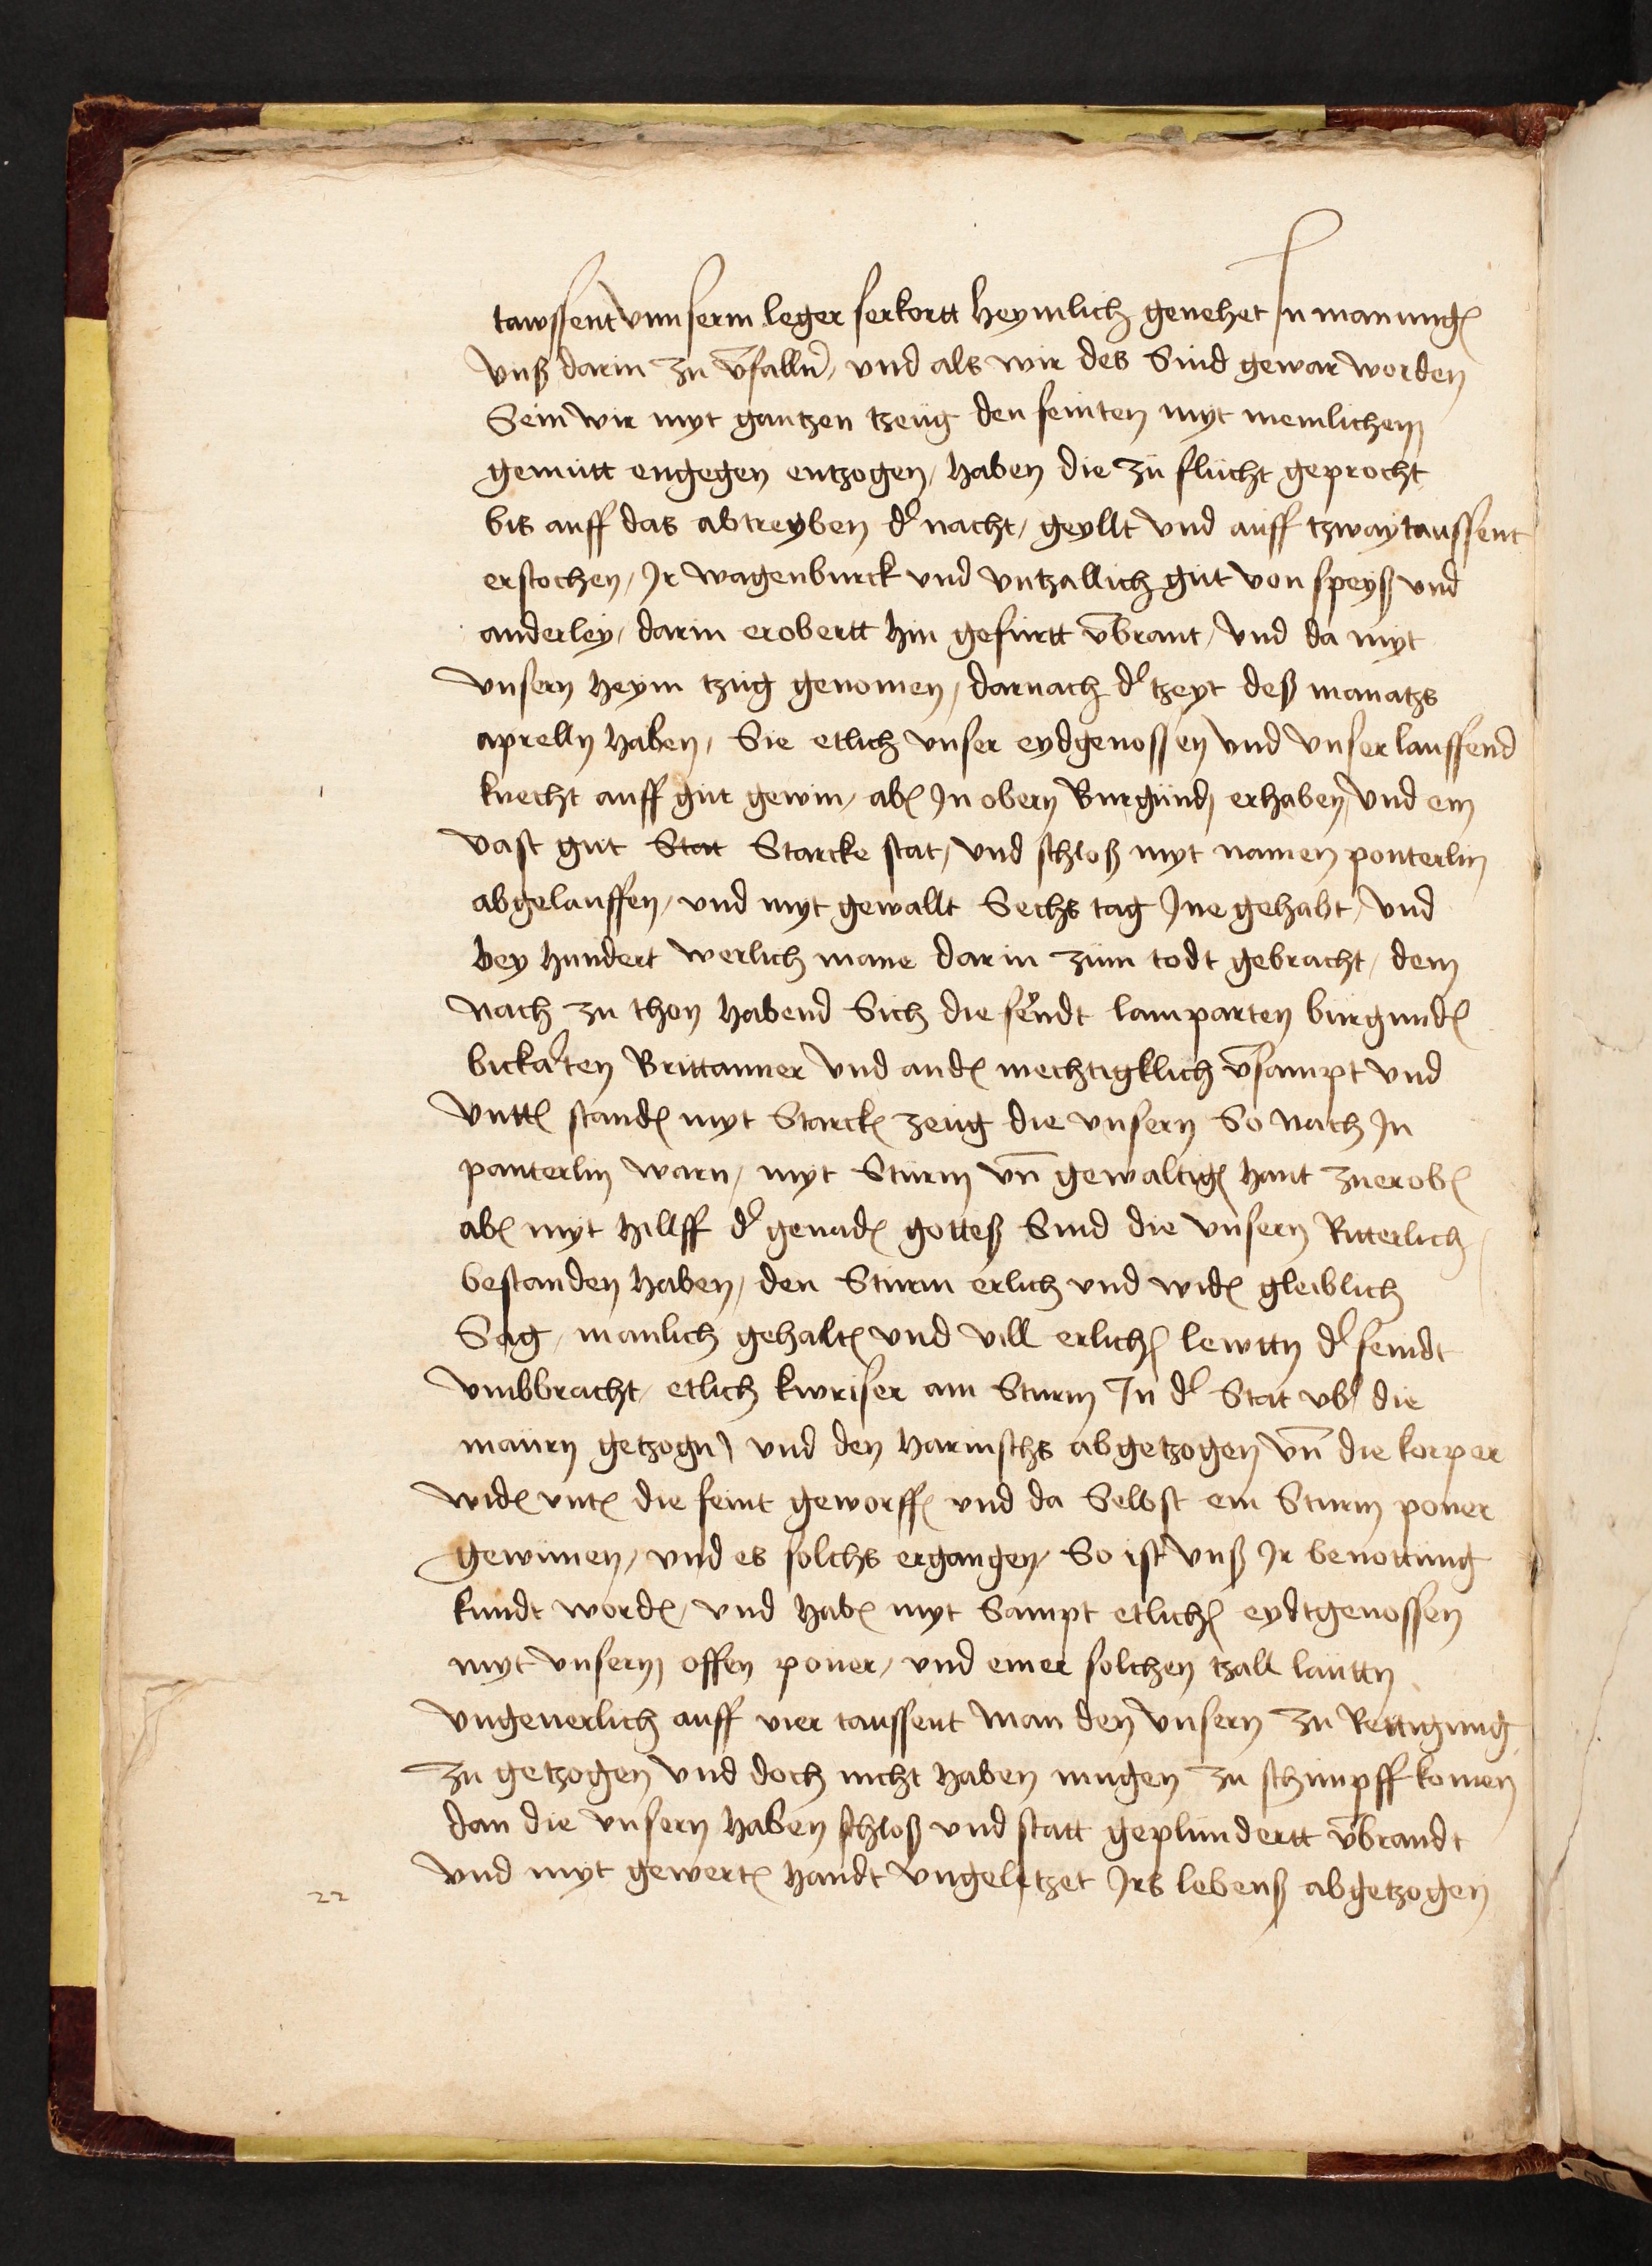 tawssent vnnserm leger ferkertt heymlich genehet In manungẽ
vnß darin zu v̄falln, vnd als wir des Sind gewar worden
Sein wir myt gantzen tzeug den feinten myt menlichem
gemütt engegen entzogen, haben die zü flücht geprocht
bis auff das abtreyben dʼ nacht, geyllt vnd aüff tzway taussent
erstochen, Ir wagenbürck vnd vntzallich güt von speyß vnd
anderley, darin erobertt hin gefürtt v̄brant, vnd da myt
vnsern heym tzüg genomen, darnach dʼ tzeyt deß manatzs
aprelln haben, Sie etlich vnser eydgenossen vnd vnser lauffend
knecht auff güt gewin, abẽ In obern Burgünd erhaben, vnd ein
vast güt Stat Starcke stat, vnd schloß myt namen ponterlin
abgelauffen, vnd myt gewallt Sechs tag Ine gehabt, vnd
bey hundert werlich mane darin züm todt gebracht, dem
nach zu thon habend Sich die feindt lamparten bürgundẽ
bickarten Brittanner vnd andẽ mechtigklich v̄sampt vnd
vnttẽ standẽ myt Starckẽ zeüg die vnsern So nach In
panterlin warn, myt Stürm vn̄ gewaltigẽ hant zuerobẽ
abẽ myt hillff dʼ genadẽ gotteß Sind die vnsern Ritterlich
bestanden haben, den Stürm erlich vnd widẽ gleiblich
Sag, manlich gehaltẽ vnd vill erlichẽ lewttn dʼ feindt
vmbbracht, etlich kwriser am Sturm In dʼ Stat vbʼ die
maürn getzogn, vnd den harinschs abgetzogen vn̄ die korper
widẽ vntẽ die feint geworffẽ vnd da Selbst ein Sturm poner
gewinnen, vnd es solchs ergangen, So ist vnß Ir benottüng
kundt wordẽ, vnd habẽ myt Sampt etlichẽ eydtgenossen
myt vnsern offen poner, vnd einer solchen tzall laüttn
vngeuerlich auff vier taussent man den vnsern zu Rettigung
zu getzogen vnd doch nicht haben mugen zu schimpff komen
dan die vnsern haben schloß vnd statt geplündertt v̄brandt
vnd myt gewertẽ handt vngeletzet Irs lebenß abgetzogen
22